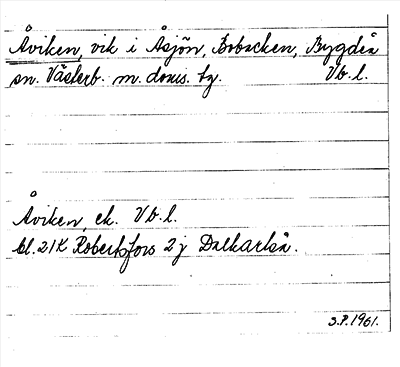 Åviken, vik i Åsjön, Bobacken, Bygdeå
sn. Västerb. m. doms. tg. Vb. l.
Åviken, ek. Vb. l.
bl. 21K Robertsfors 2 j Dalkarlså.
S.P. 1961.